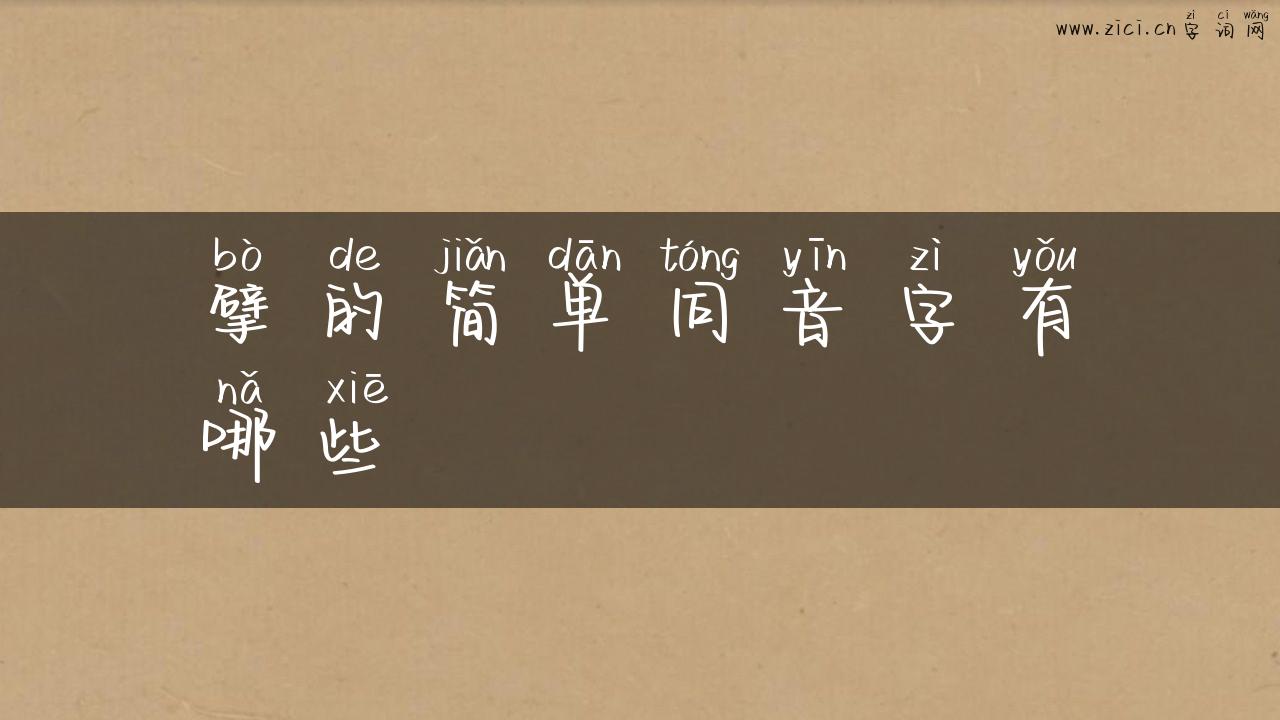 zì cí wǎng
www.zici.cn 字词网
bò de jiǎn dān tóng yīn zì yǒu
擘的简单同音字有
nǎ xiē
哪些